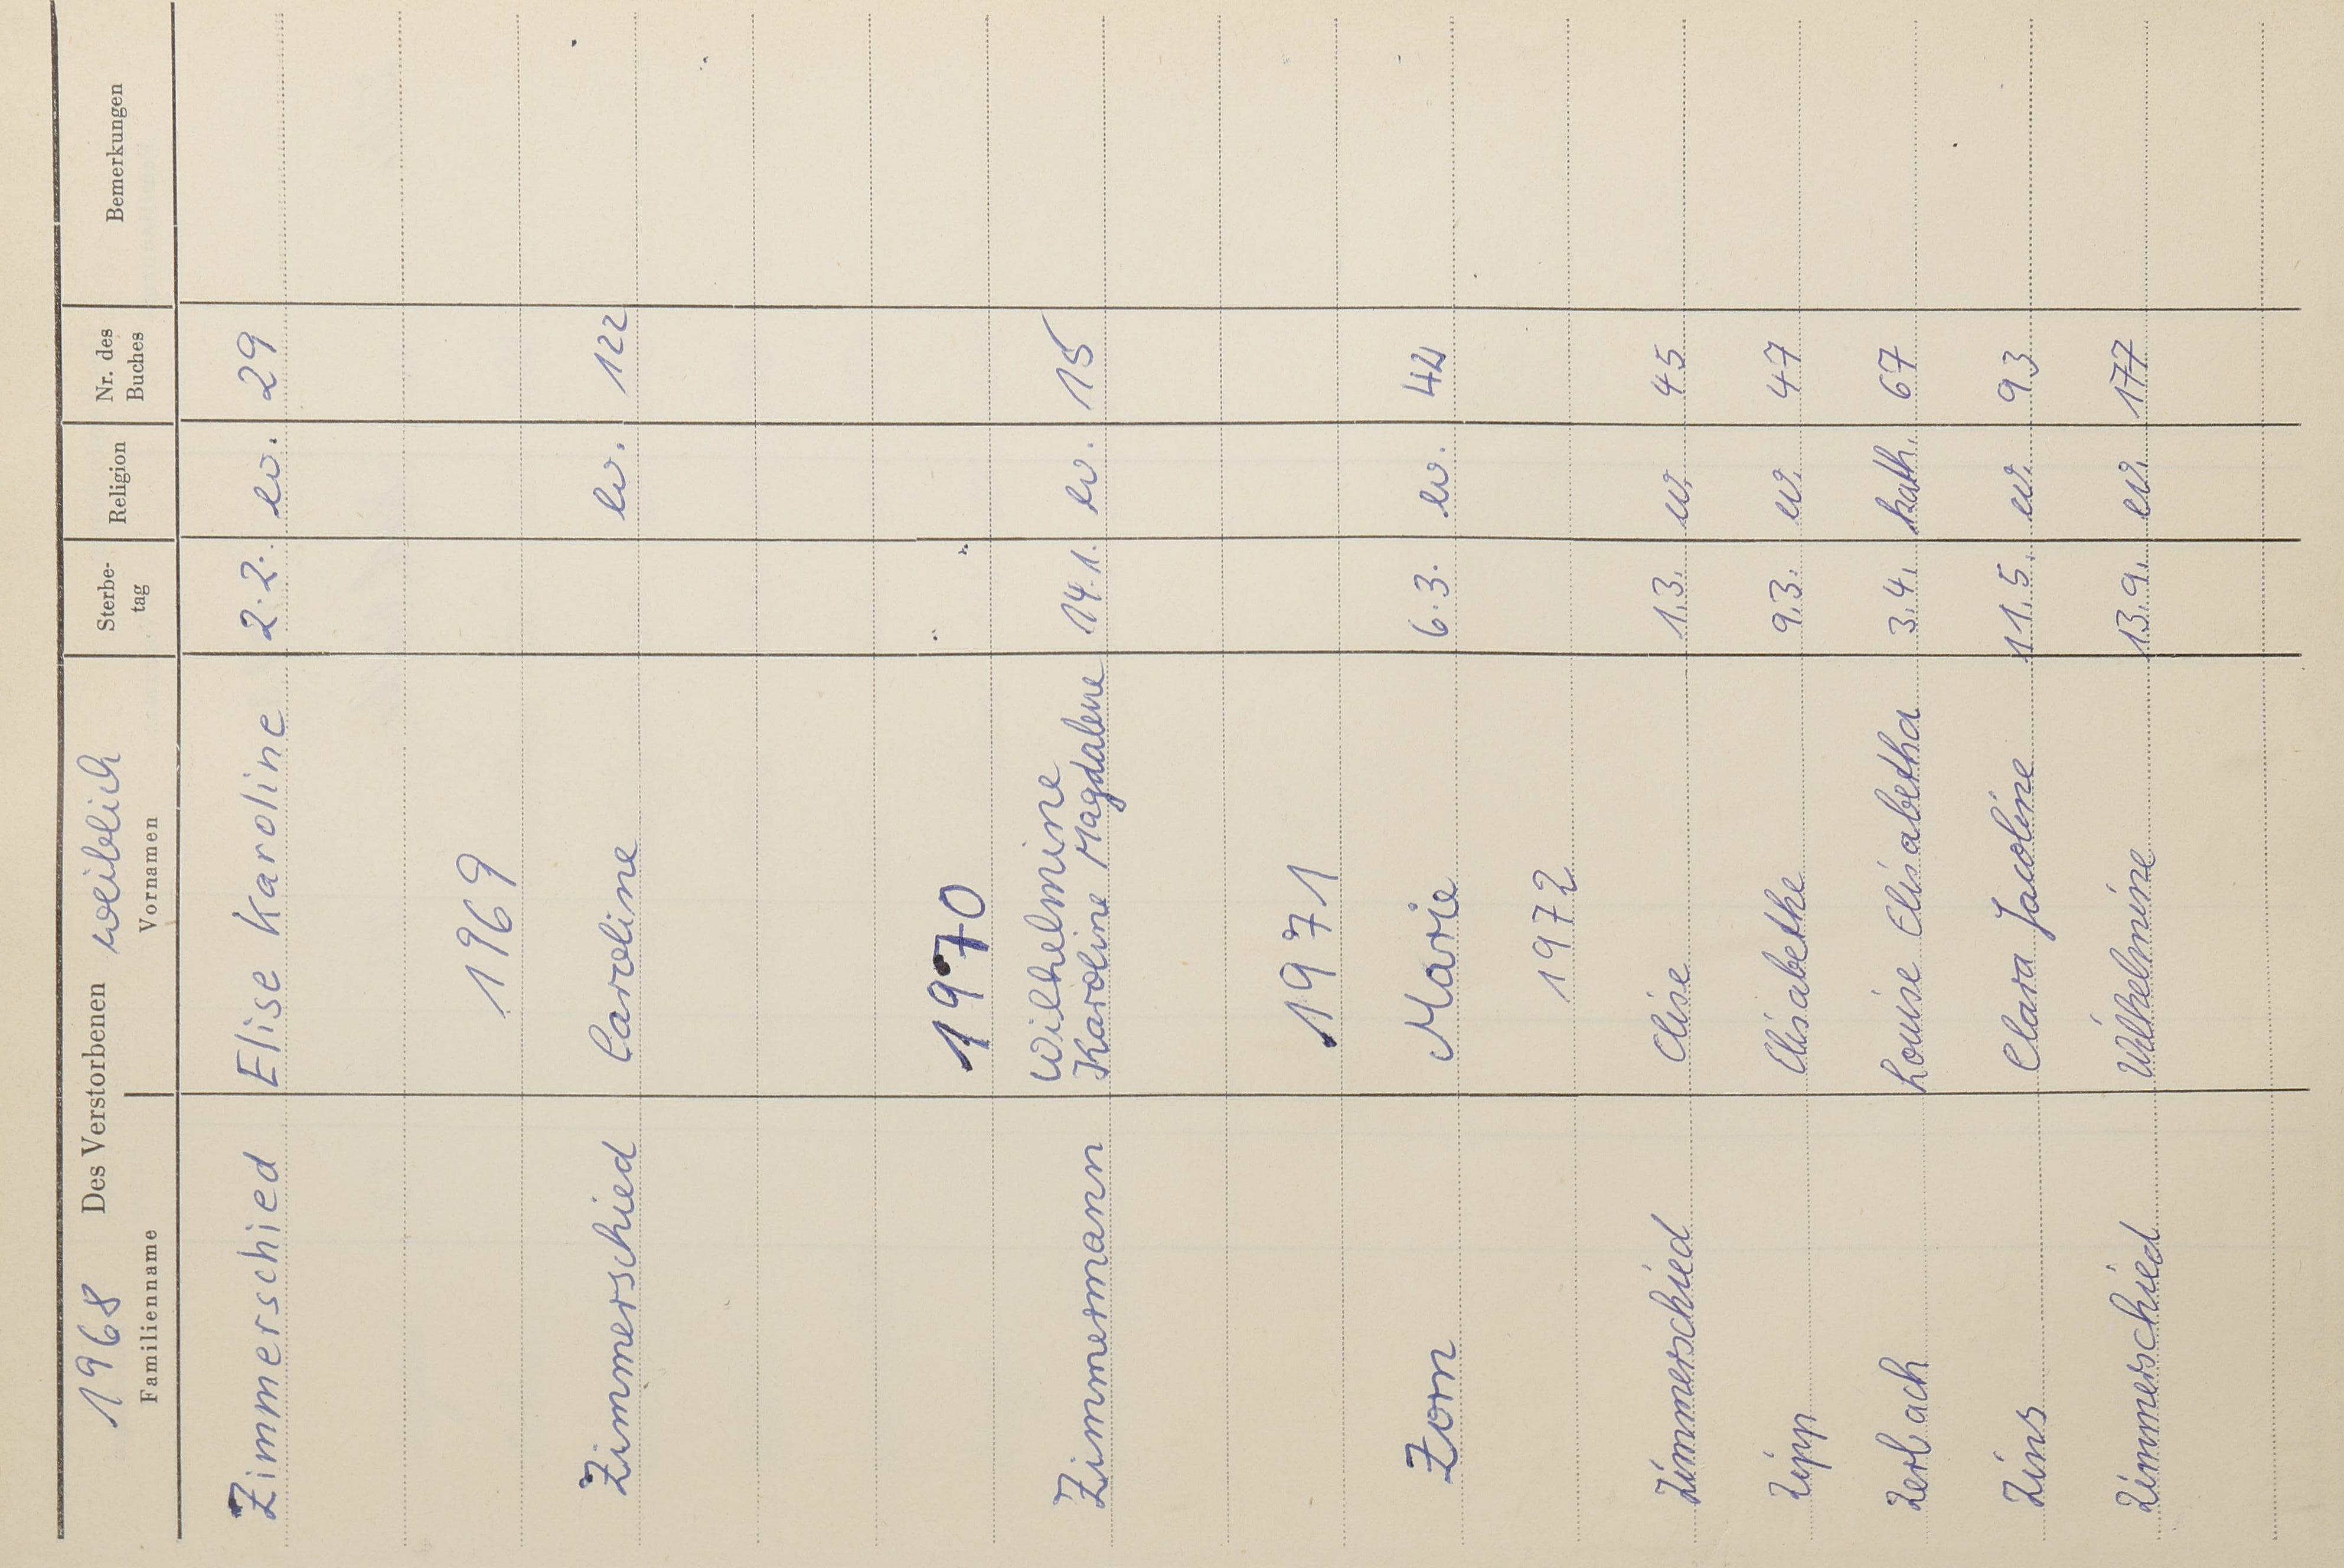 1968 Des Verstorbenen weiblich
Familienname Vornamen Sterbe- tag Religion Nr. des Buches Bemerkungen
Zimmerschied Elise Karoline 2.2. ev. 29
1969
Zimmerschied Caroline ev. 122
1970
Wilhelmine
Zimmermann Karoline Magdalene 14.1. ev. 15
1971
Zorn Marie 6.3. ev. 42
1972
Zimmerschied Elise 1.3. ev. 45
Zipp Elisabethe 9.3. ev. 47
Zerbach Louise Elisabetha 3.4. kath. 67
Zins Clara Jacoline 11.5. ev. 93
Zimmerschied Wilhelmine 13.9. ev. 177